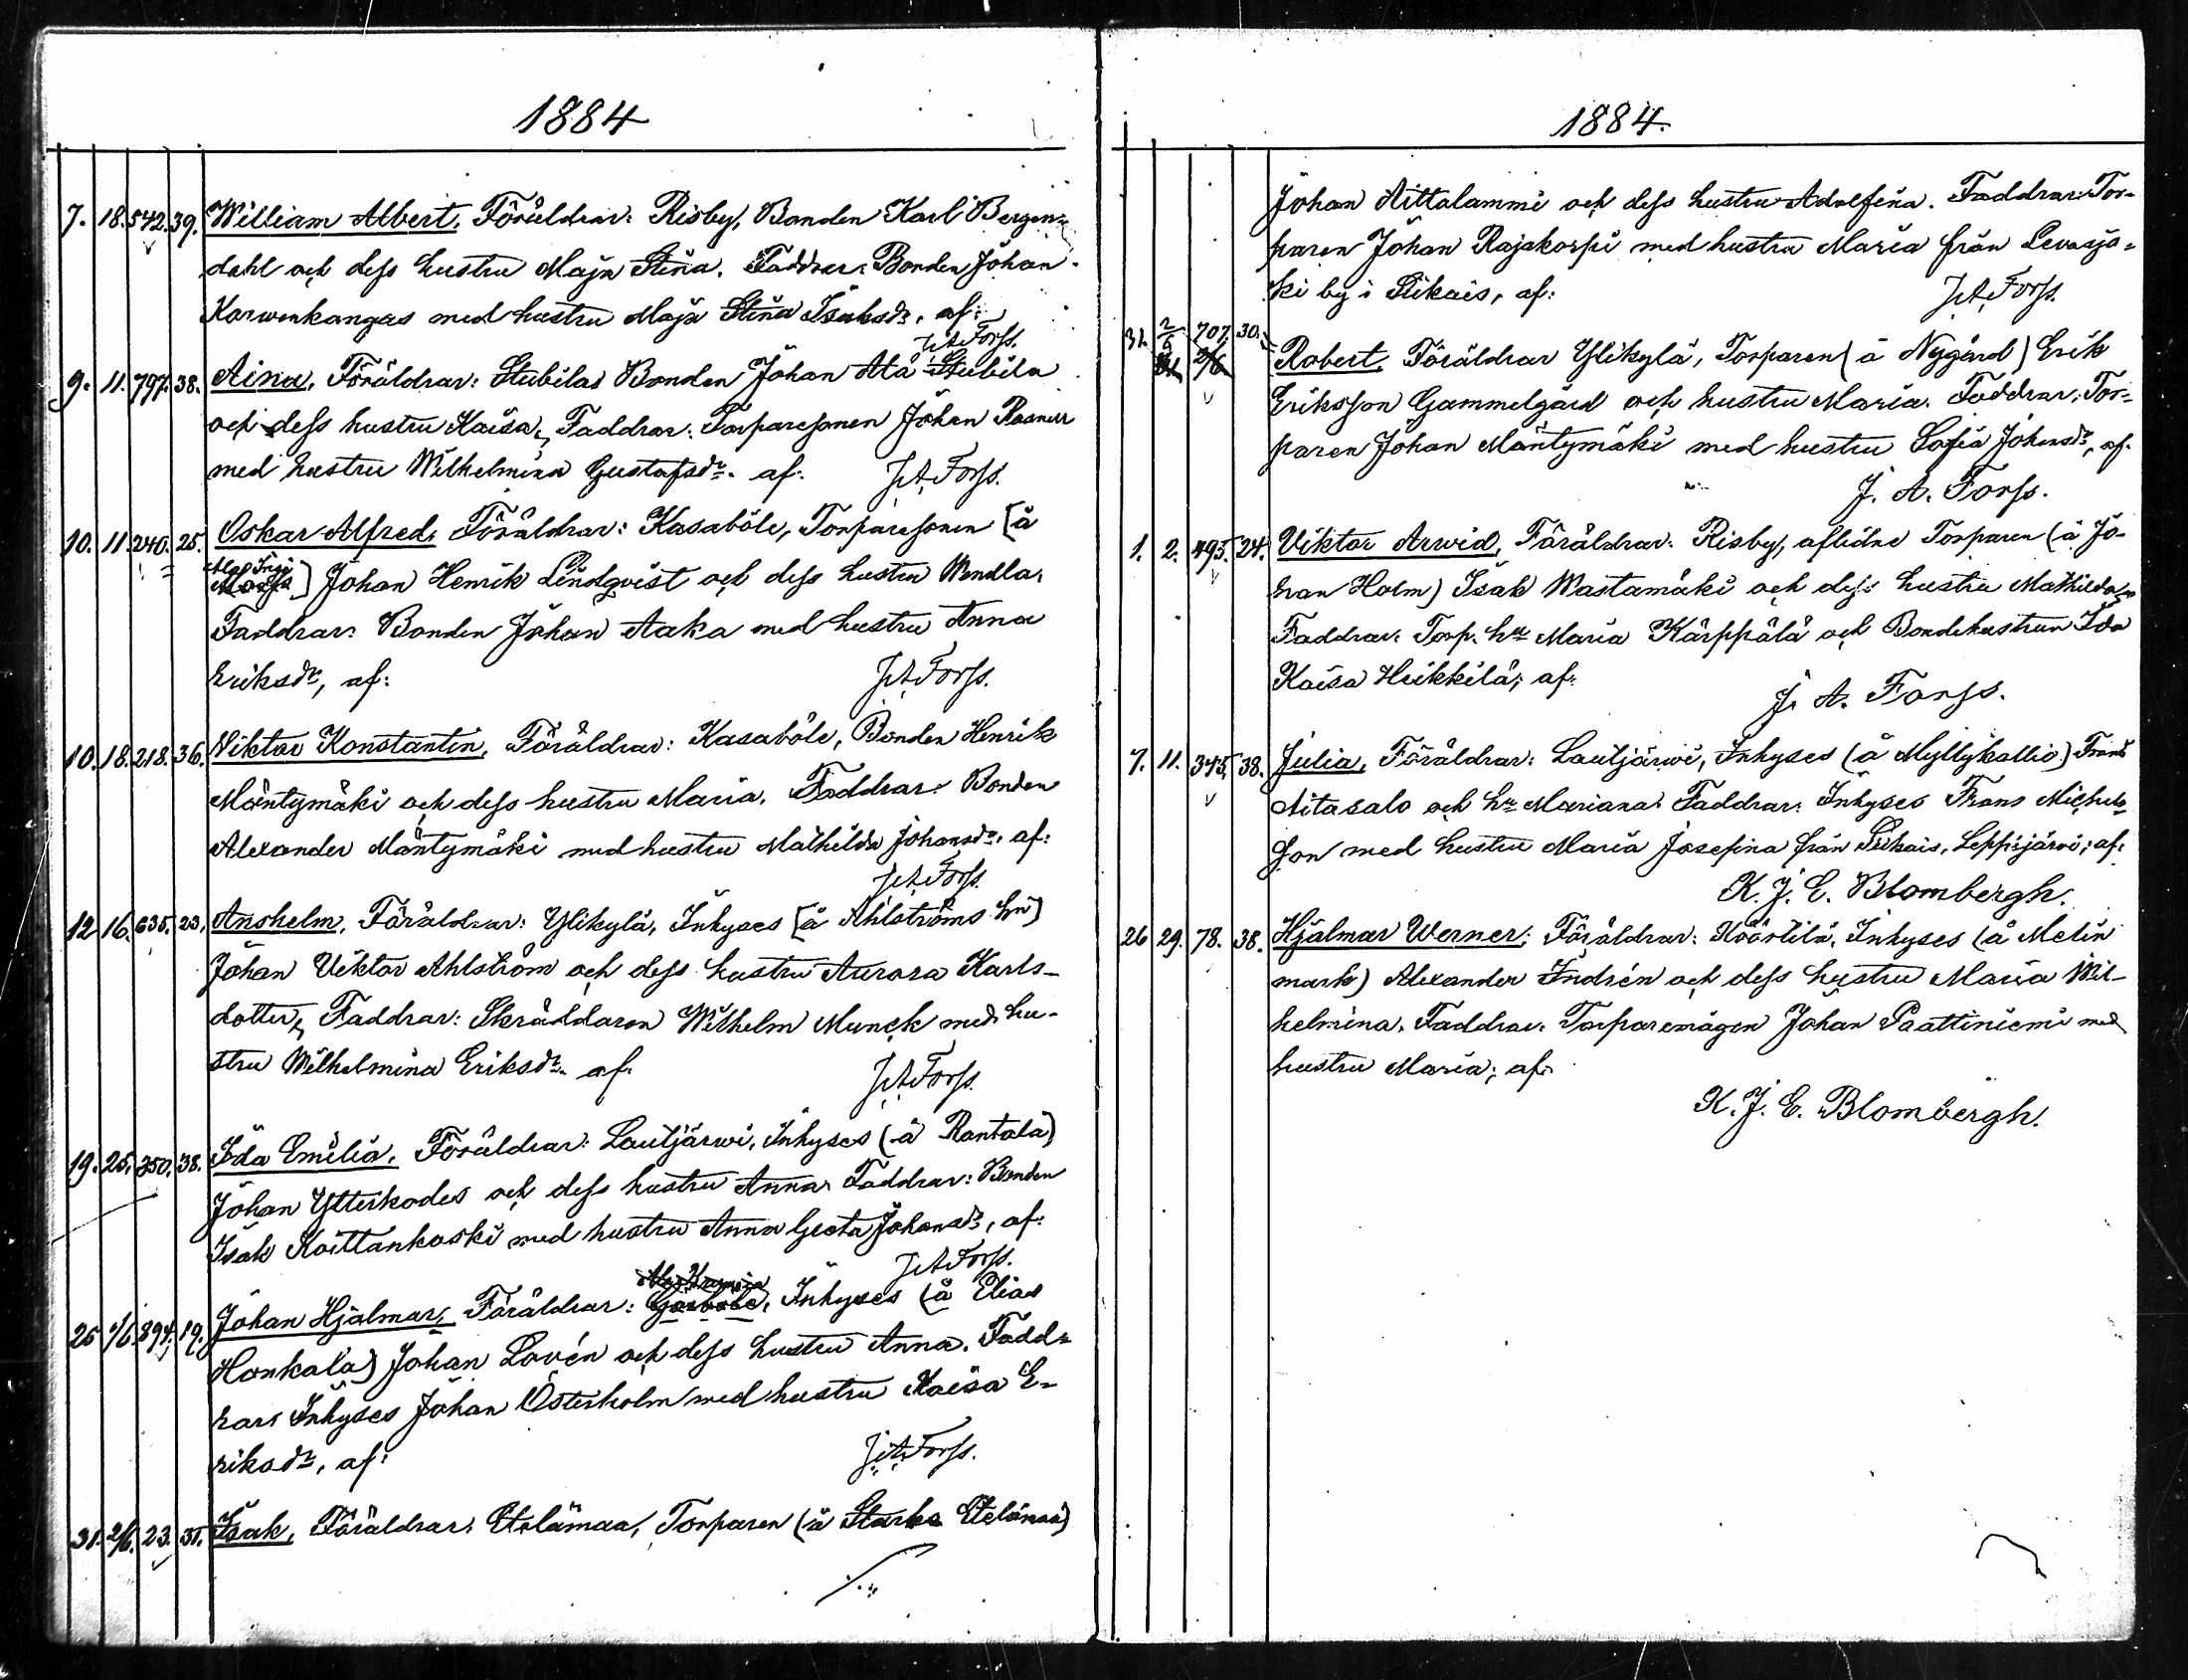 1884
7. 18. 542. 39. William Albert, Föräldrar: Risby, Bonden Karl Bergen-
dahl och dess hustru Maja Stina. Faddrar: Bonden Johan
Karwenkangas med hustru Maja Stina Isaksdr, af:
J. A. Forss.
9. 11. 797. 38. Aina, Föräldrar: Stubilas Bonden Johan Ala Stubila
och dess hustru Kaisa, Faddrar: Torparesonen Johan
med hustru Wilhelmina Gustafsdr. af: J. A. Forss.
10. 11. 240. 25. Oskar Alfred, Föräldrar: Kasaböle, Torparesonen (å
) Johan Henrik Lindqvist och dess hustru Wendla,
Faddrar: Bonden Johan Aaka med hustru Anna
Eriksdr, af: J. A. Forss.
10. 18. 218. 36. Viktor Konstantin, Föräldrar: Kasaböle, Bonden Henrik
Mäntymäki och dess hustru Maria, Faddrar: Bonden
Alexander Mäntymäki med hustru Mathilda Johansdr. af:
J. A. Forss.
12 16. 635. 23. Anshelm, Föräldrar: Ylikylä, Inhyses (å Ahlströms hn)
Johan Viktor Ahlström och dess hustru Aurora Karls-
dotter, Faddrar: Skräddaren Wilhelm Munck med hu-
stru Wilhelmina Eriksdr. af. J. A. Forss.
19. 25. 350. 38. Ida Emilia, Föräldrar: Lautjärwi, Inhyses (å Rantala)
Johan Ytterkodes och dess hustru Anna, Faddrar: Bonden
Isak Koittankoski med hustru Anna Greta Johansdr, af:
J. A. Forss.
25 1/6. 894. 19. Johan Hjalmar, Föräldrar: Inhyses (å Elias
Honkala) Johan Lovén och dess hustru Anna. Fadd-
rar: Inhyses Johan Österholm med hustru Kaisa E-
riksdr, af: J. A. Forss.
31. 2/6. 23. 31. Isak, Föräldrar: Etelämaa, Torparen (å Starke Etelämaa)
1884.
Johan Aittalammi och dess hustru Adolfina. Faddrar: Tor-
paren Johan Rajakorpi med hustru Maria från Levasjo-
ki by i Siikais, af: J. A. Forss.
31. 2/6 707. 30. Robert, Föräldrar Ylikylä, Torparen (å Nygård) Erik
Eriksson Gammelgård och hustru Maria. Faddrar: Tor-
paren Johan Mäntymäki med hustru Sofia Johansdr, af.
J. A. Forss.
1. 2. 495. 24. Viktor Arwid, Föräldrar: Risby, aflidne Torparen (å Jo-
han Holm) Isak Wastamäki och dess hustru Mathilda
Faddrar: Torp. hr Maria Kärppälä och Bondehustrun Ida
Kaisa Heikkilä; af:
J. A. Forss.
7. 11. 345. 38. Julia, Föräldrar: Lautjärwi, Inhyses (å Myllykallio) Frans
Aitasalo och hr Mariana. Faddrar: Inhyses Frans Michels-
son med hustru Maria Josefina från Siikais, Leppijärvi; af:
K. J. E. Blombergh.
26 29. 78. 38. Hjalmar Werner; Föräldrar: Köörtilä, Inhyses (å Melin
mark) Alexander Indrén och dess hustru Maria Wil-
helmina. Faddrar: Torparemågen Johan Paattiniemi med
hustru Maria; af:
K. J. E. Blombergh.